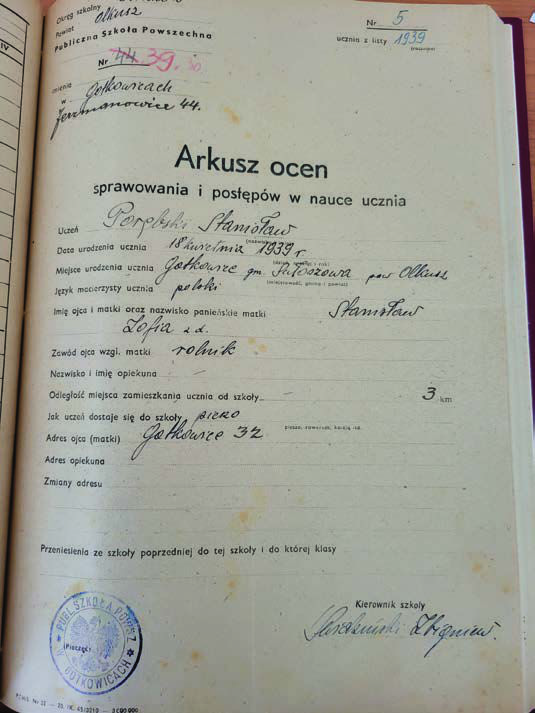 Okręg szkolny
Powiat Olkusz
Publiczna Szkoła Powszechna
Nr 44 39.
imienia
w Gotkowicach
Jerzmanowice 44.
Nr 5
ucznia z listy 1939
IV
Arkusz ocen
sprawowania i postępów w nauce ucznia
Uczeń Porębski Stanisław
Data urodzenia ucznia 18 kwietnia 1939 r
Miejsce urodzenia ucznia Gotkowice gm. Sułoszowa pow Olkusz
(miejscowość, gmina i powiat)
Język macierzysty ucznia polski
Imię ojca i matki oraz nazwisko panieńskie matki Stanisław
Zofia z d.
Zawód ojca wzgl. matki rolnik
Nazwisko i imię opiekuna
Odległość miejsca zamieszkania ucznia od szkoły 3 km
Jak uczeń dostaje się do szkoły pieszo
Adres ojca (matki) Gotkowice 32
Adres opiekuna
Zmiany adresu
Przeniesienia ze szkoły poprzedniej do tej szkoły i do której klasy
Kierownik szkoły
Zbigniew.
PUBL. SZKOŁA POWSZ. W GOTKOWICACH
(Pieczęć)